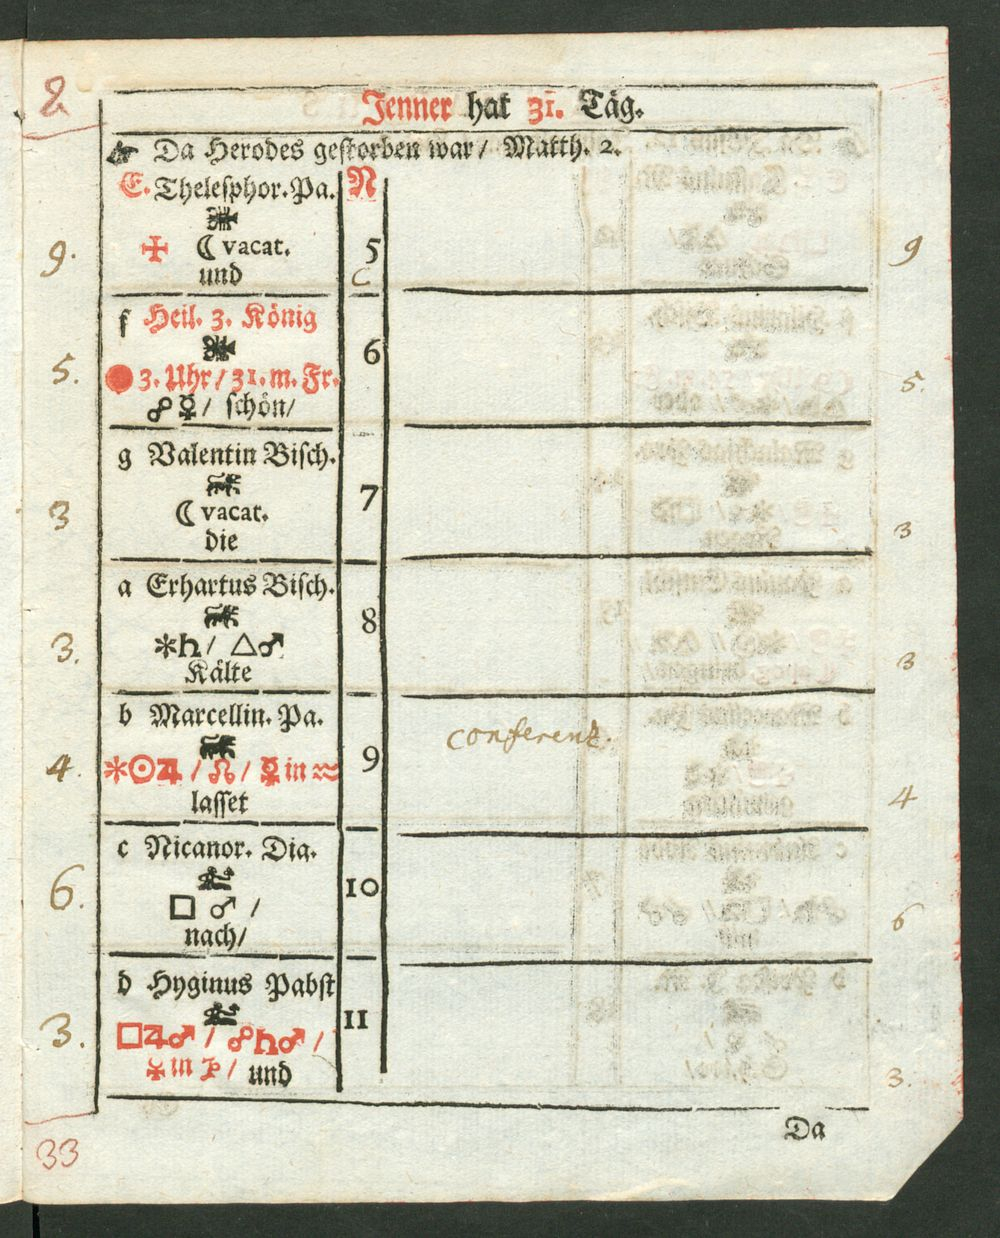 2
Jenner hat 31. Täg.
☞ Da Herodes gestorben war/ Matth. 2.
E. Thelesphor. Pa. N
9. ✠ ☾ vacat. 5 9
und C
f Heil. 3. König
6
5. ● 3. Uhr/ 31. m. Fr. 5.
☍ ☿/ schön/
g Valentin Bisch.
3 ☾ vacat. 7 3
die
a Erhartus Bisch.
8
3. ⚹ ♄/ △ ♂ 3
Kälte
b Marcellin. Pa.
conferenz.
4. ⚹ ☉ ♃ / ☊ / ☿ in ♒ 9 4
lasset
c Nicanor. Dia.
6. □ ♂ / 10 6
nach/
d Hyginus Pabst
11
3. □ ♃ ♂ / ☍ ♄ ♂ / 3.
☿ in ♑ / und
Da
33